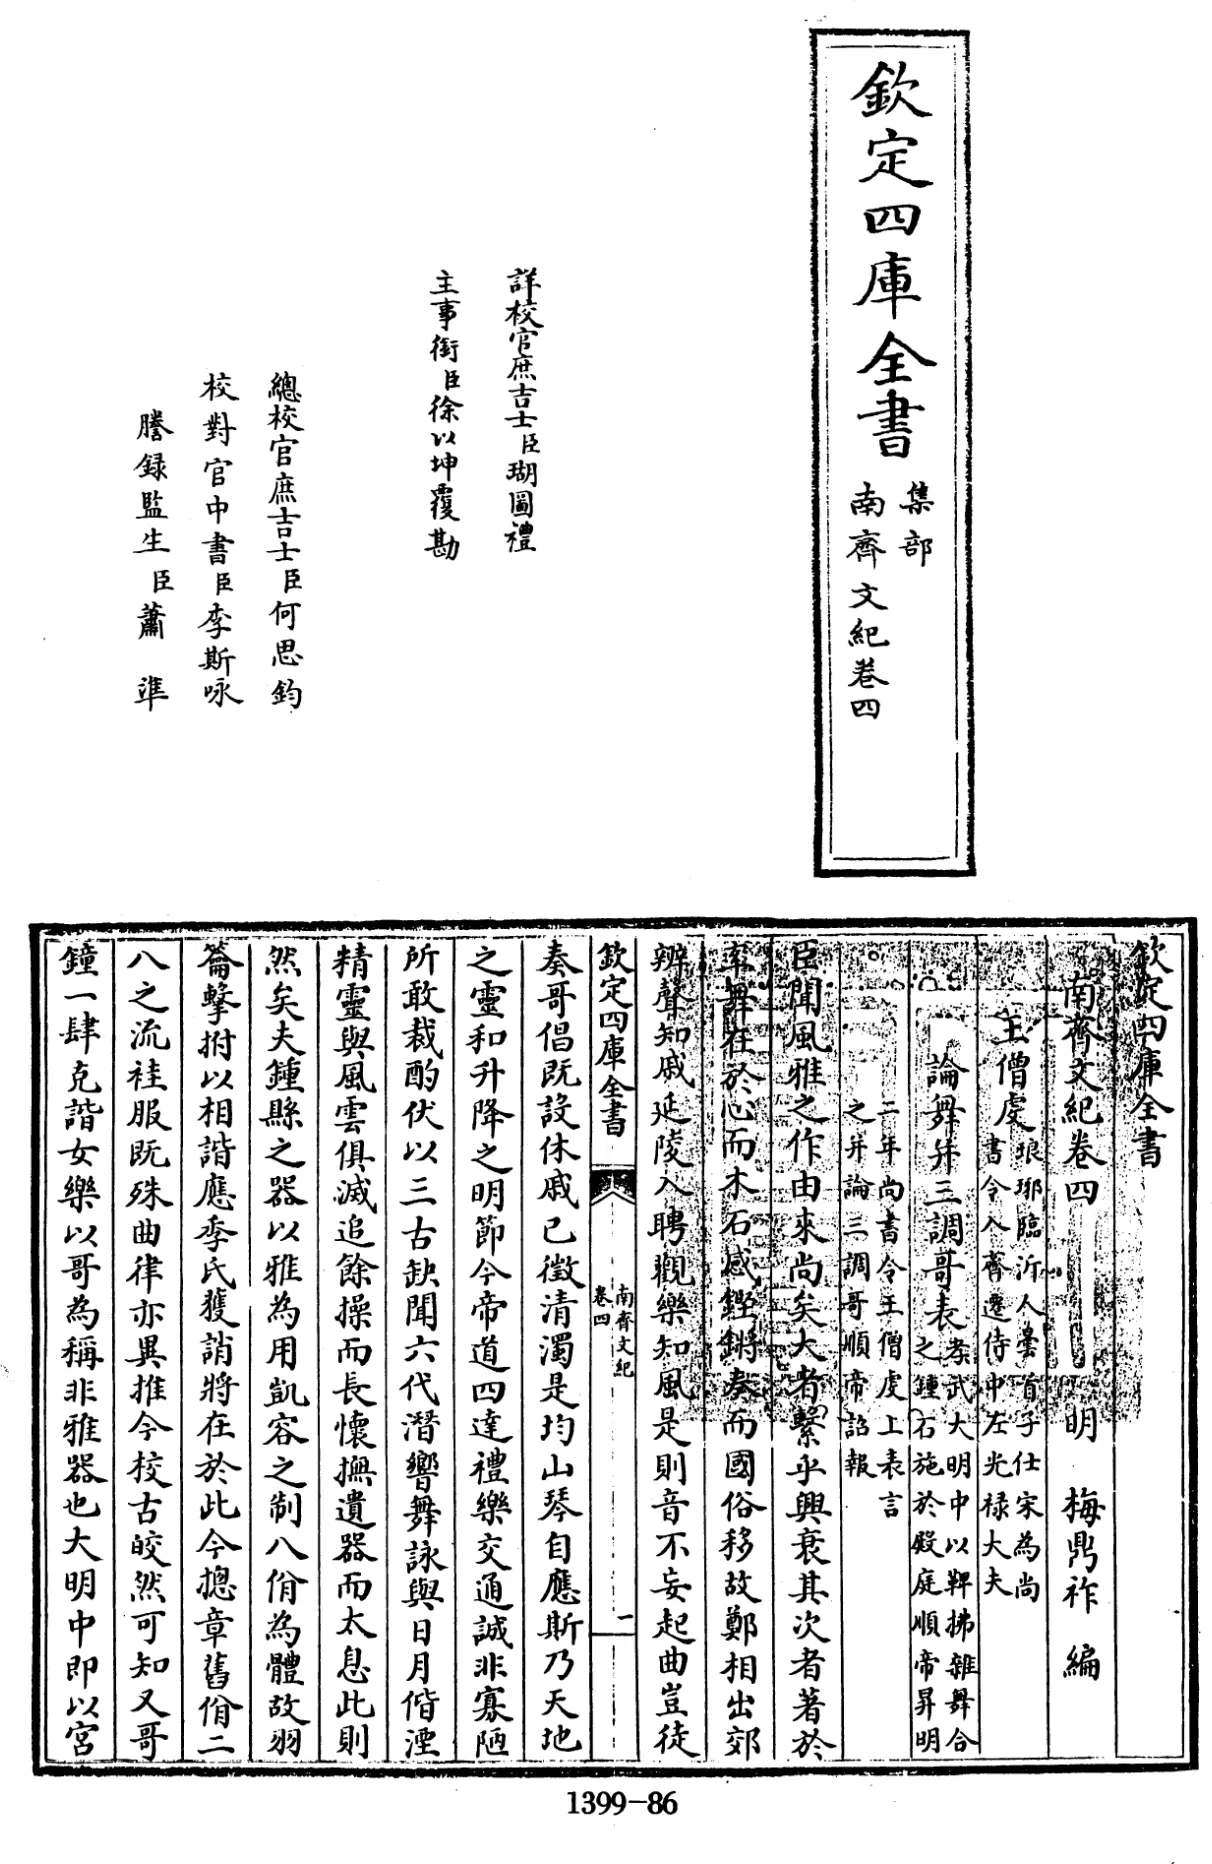 欽定四庫全書
集部
南齊文紀卷四
詳校官庶吉士臣瑚圖禮
主事銜臣徐以坤覆勘
總校官庶吉士臣何思鈞
校對官中書臣李斯咏
謄録監生臣蕭準
欽定四庫全書
南齊文紀卷四
明 梅鼎祚 編
王僧虔
琅琊臨沂人曇首子仕宋為尚
書令入齊遷侍中左光禄大夫
論舞并三調哥表
孝武大明中以鞞拂雜舞合
之鍾石施於殿庭順帝昇明
二年尚書令王僧虔上表言
之并論三調哥順帝詔報
臣聞風雅之作由來尚矣大者繫乎興衰其次者著於
率舞在於心而木石感鏗鏘奏而國俗移故鄭相出郊
辨聲知戚延陵入聘觀樂知風是則音不妄起曲豈徒
欽定四庫全書
南齊文紀
卷四
一
奏哥倡既設休戚已徵清濁是均山琴自應斯乃天地
之靈和升降之明節今帝道四達禮樂交通誠非寡陋
所敢裁酌伏以三古缺聞六代潛響舞詠與日月偕湮
精靈與風雲俱滅追餘操而長懷撫遺器而太息此則
然矣夫鍾縣之器以雅為用凱容之制八佾為體故羽
籥擊拊以相諧應季氏獲誚將在於此今摠章舊佾二
八之流袿服既殊曲律亦異推今校古皎然可知又哥
鐘一肆克諧女樂以哥為稱非雅器也大明中即以宮
1399-86